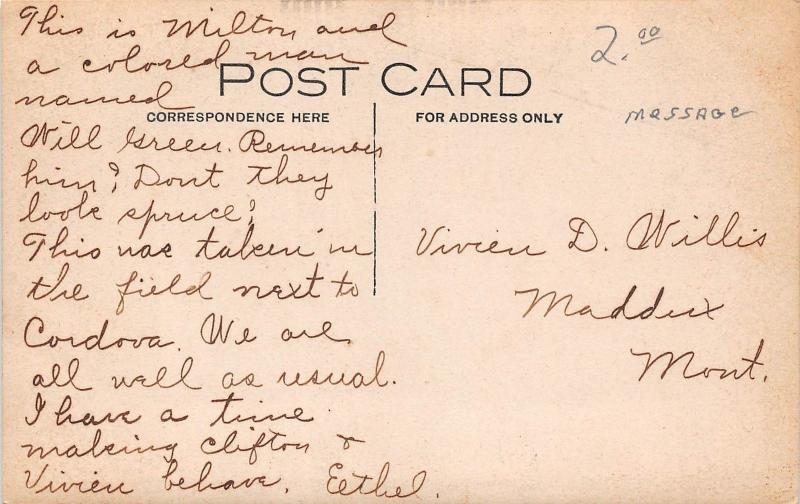 This is Milton and
a colored man
named
Will Green. Remember
him? Dont they
look spruce?
This was taken in
the field next to
Cordova. We are
all well as usual.
I have a time
making Clifton &
Vivien behave. Eethel.
POST CARD
CORRESPONDENCE HERE
FOR ADDRESS ONLY
2.00
MESSAGE
Vivien D. Willis
Maddux
Mont.